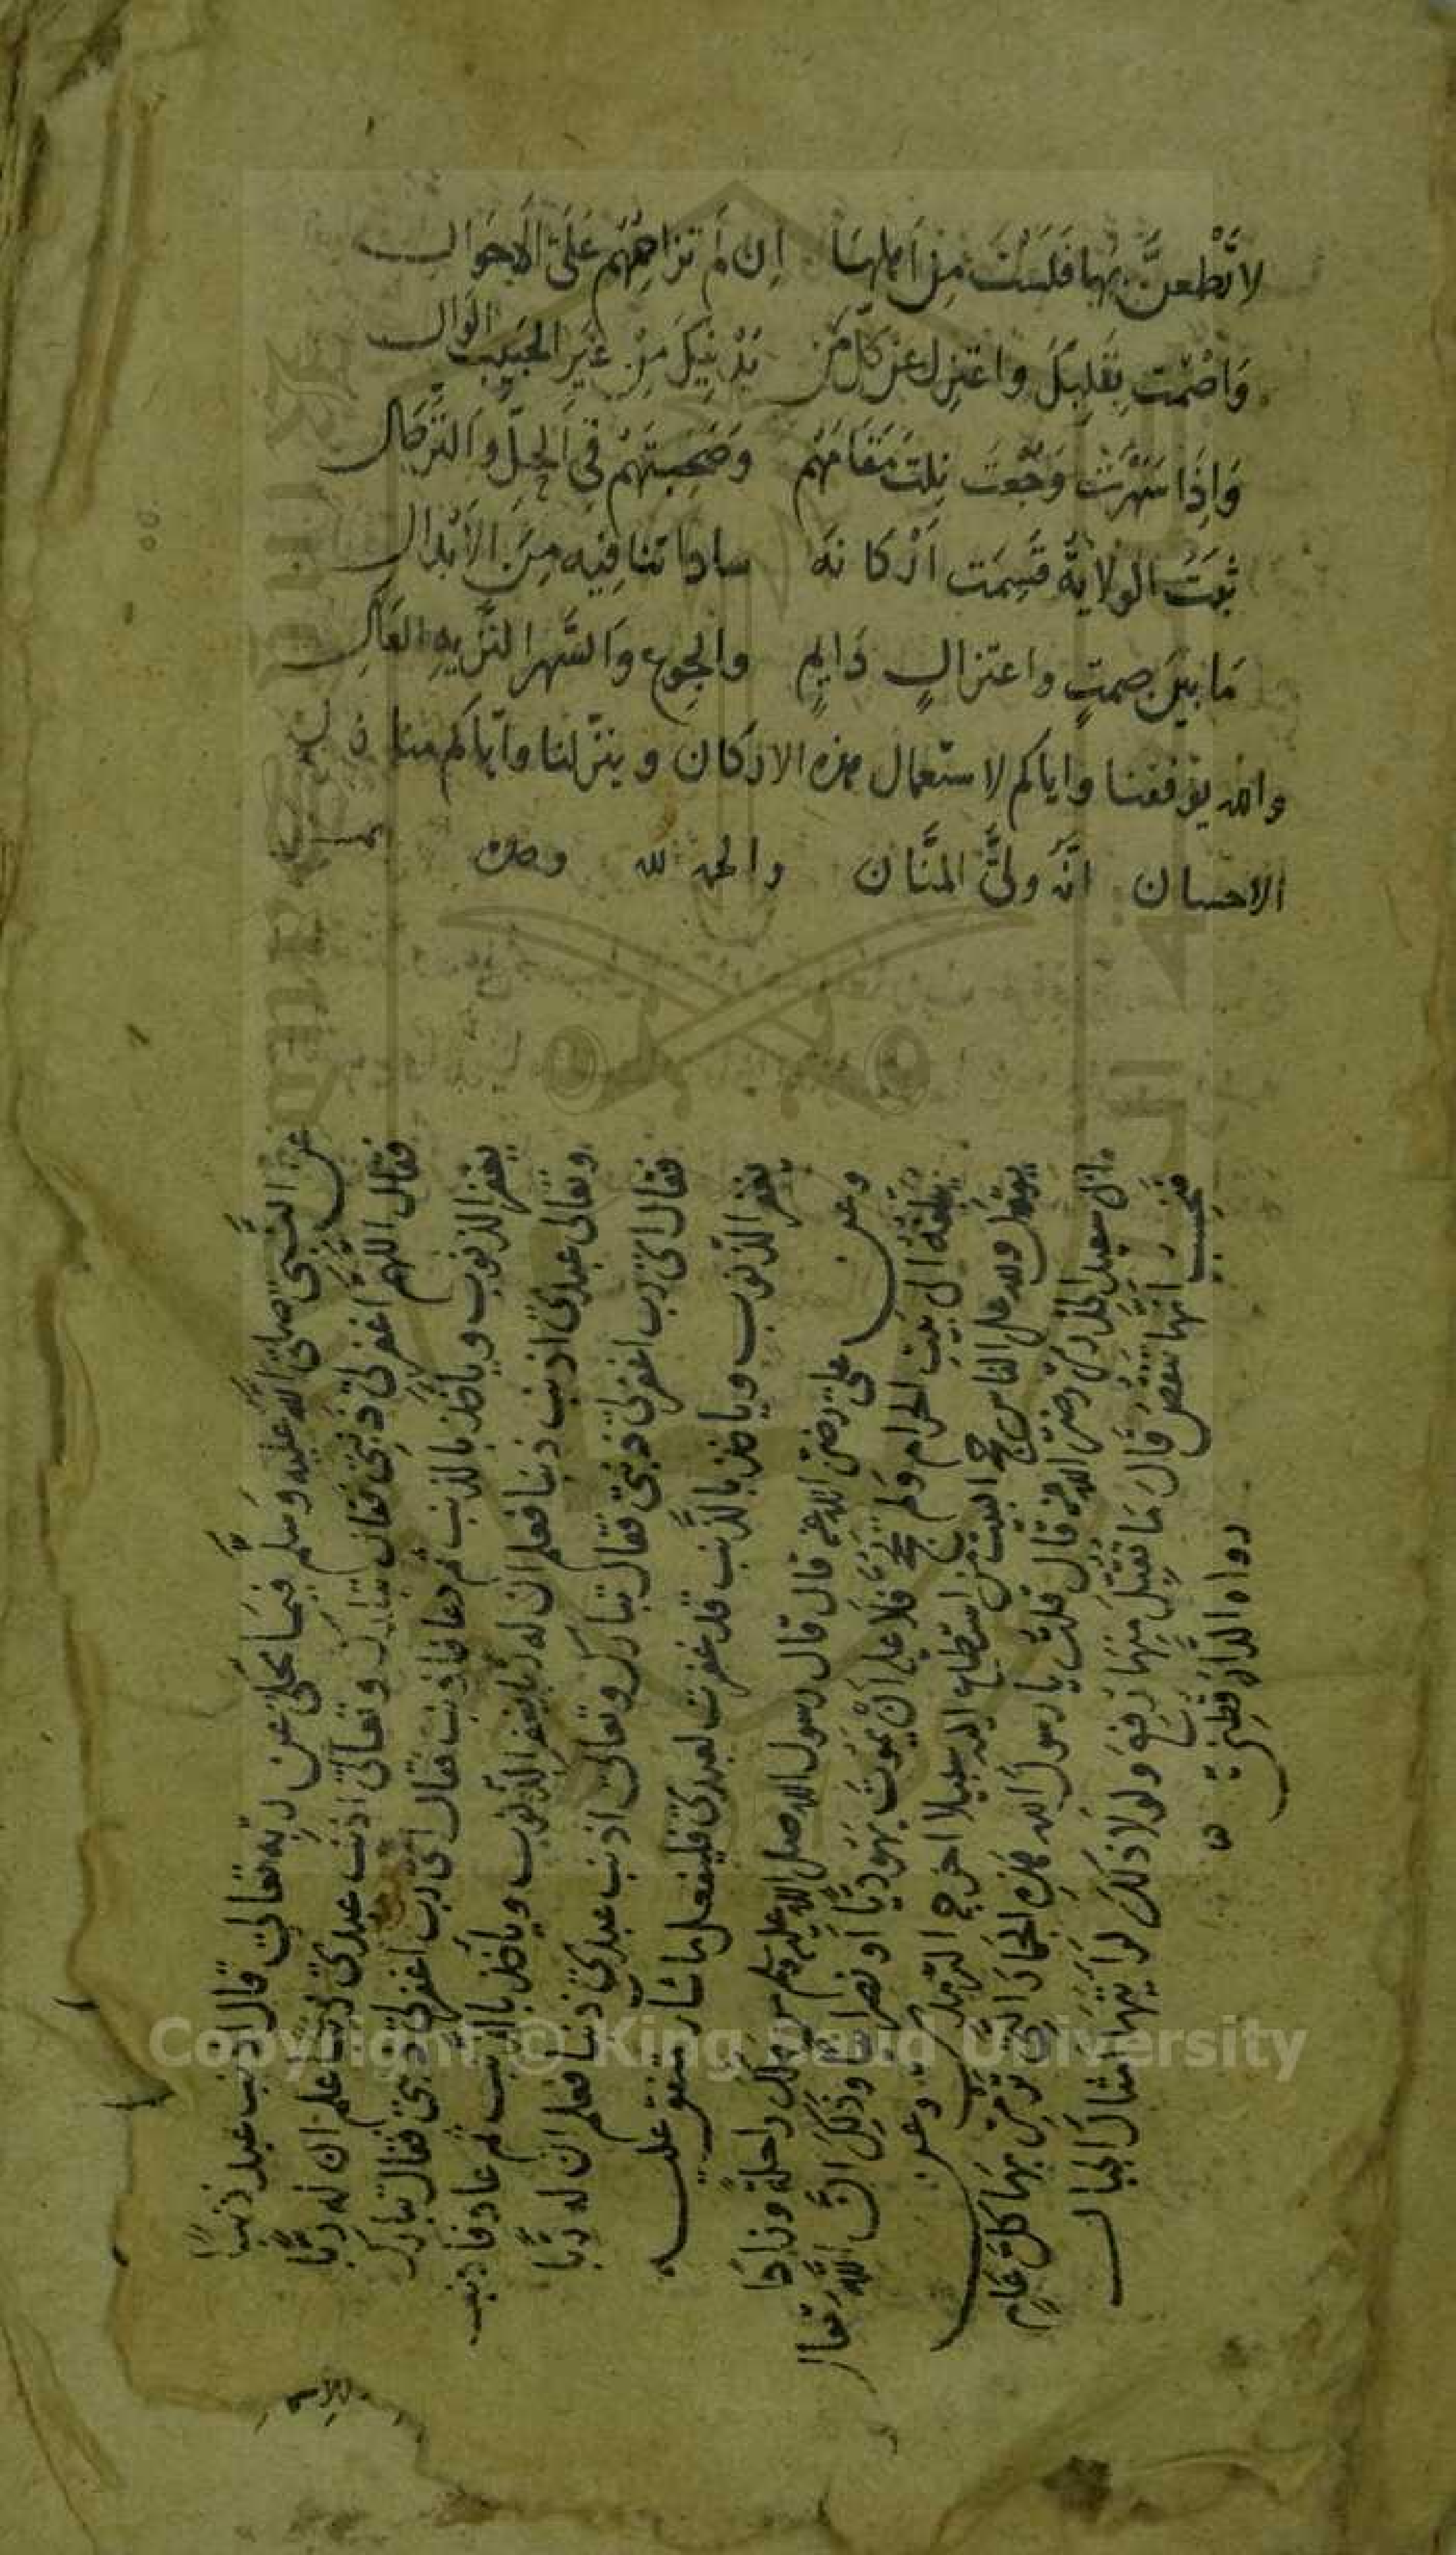 لا تَطْمعنَّ بها فلَسْتَ مِن اَهلِهَا اِن لَم تزاحمْهُم عَلَى الاَحوَالِ
وَاصْمت بِقَلبِكَ واعتزِل عن كلّ مَن يُدْنِيكَ مِنْ غَيرِ الحَبيبِ الوَالِ
وَاِذَا سَهَرْتَ وَجُعْتَ نِلتَ مَقَامَهُم وَصَحِبتَهُمْ فى الحِلّ والتَّرحَال
بَيْتُ الولايَة قُسِمَت اَرْكانه ساداتنا فيه مِنَ الاَبْدَال
مَا بَين صمتٍ واعتزالٍ دَايمٍ والجوع وَالسَّهر النَّزيه العَالِ
والله يوفقنا واياكم لاستعمال هذه الاركان وينزلنا واياكم منازل
الاحسان انّه ولىُّ المنَّان والحمد لله وحده
عن النَّبىّ صلى اللّه عليه وسَلّم فيما يحكى عن ربّه تعالى قال اذنب عبد ذنبًا
فقال اللّهمّ اغفر لى ذنبى فقال تبارك وتعالى اذنب عبدى ذنبا علم ان له ربًّا
يغفر الذنوب وياخذ بالذنب ثم عاد فاذنب فقال اى ربّ اغفر لى ذنبى فقال تبارك
وتعالى عبدى اذنب ذنبا فعلم ان له ربا يغفر الذنوب وياخذ بالذنب ثم عاد فاذنب
فقال اى ربّ اغفر لى ذنبى فقال تبارك وتعالى اذنب عبدى ذنبا فعلم ان له ربًّا
يغفر الذنوب وياخذ بالذَّنب قد غفرت لعبدى فليفعل ما شاء متفق عليه
وعن على رضى الله عنه قال قال رسول الله صلى الله عليه وسلم من ملك راحلة وزادًا
يبلغه الى بَيتِ الحرام وَلم يحج فلا عليه ان يموت يهوديًّا او نصرانيا وذلك انَّ اللّه تعالى
يقول ولله على الناس حج البيت من استطاع اليه سبيلا اخرجه الترمذى وعن
ابى سعيد الخدرى رضى الله عنه قال قلت يا رسول الله هذه الجمار التى ترمى بها كل عَامٍ
فنحسب انها تنقص قَال ما تقبّل منها رفع ولولا ذلك لرأيتها امثال الجبال
رواه الدَّارقطنى
للاسم
Copyright © King Saud University